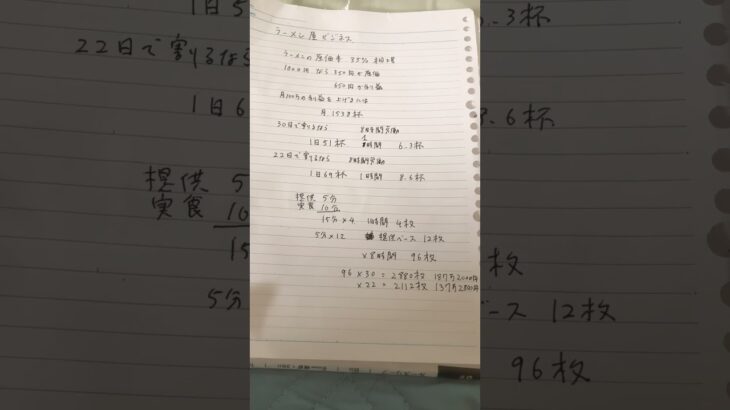 ラーメン屋ビジネス
ラーメンの原価率 35% 相場
1000円なら 350円が原価
650円が利益
月100万の利益を上げるには
月 1538杯
30日で割るなら 8時間労働
1日51杯 1時間 6.3杯
22日で割るなら 8時間労働
1日69杯 1時間 8.6杯
提供 5分
実食 10分
15分×4 1時間 4枚
5分×12 提供ベース 12枚
×8時間 96枚
96×30=2880枚 187万2000円
×22=2112枚 137万2800円